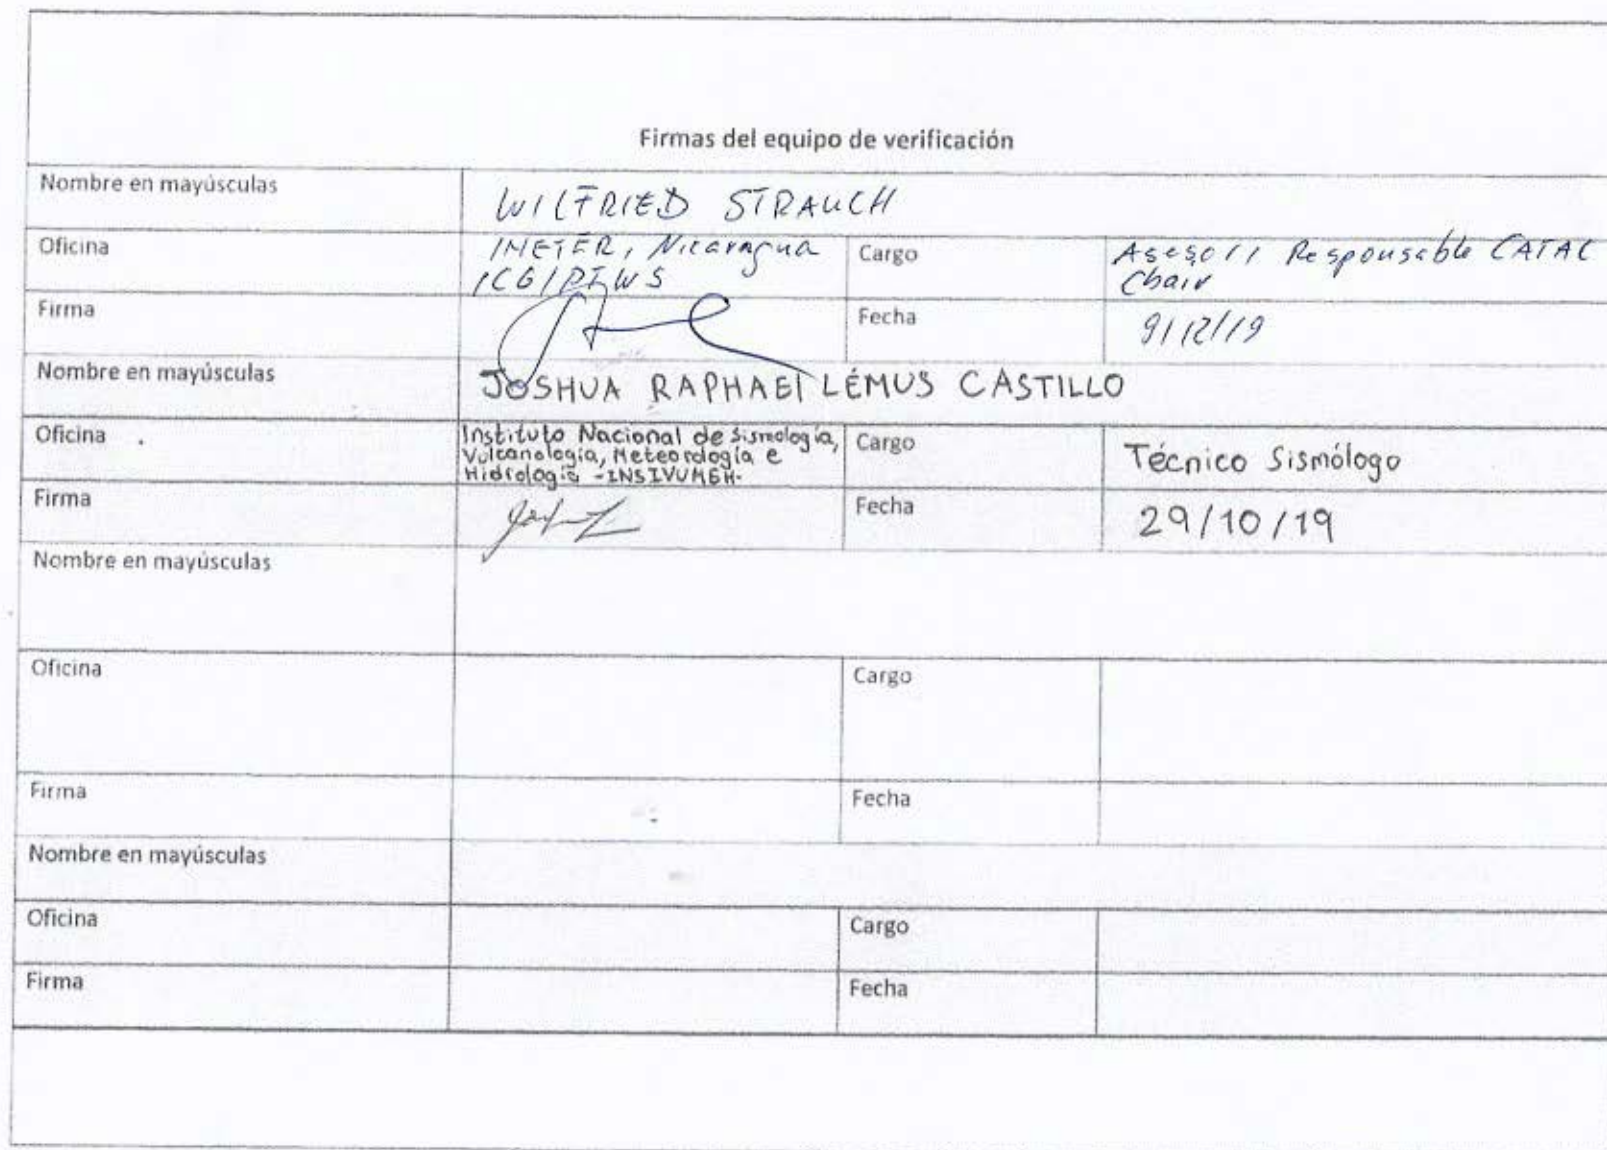 Firmas del equipo de verificación
Nombre en mayúsculas WILFRIED STRAUCH
Oficina INETER, Nicaragua Cargo Asesor, Responsable CATAC
ICG/PTWS Chair
Firma Fecha 9/12/19
Nombre en mayúsculas JOSHUA RAPHAEl LÉMUS CASTILLO
Oficina Instituto Nacional de Sismología, Cargo Técnico Sismólogo
Vulcanología, Meteorología e
Hidrología -INSIVUMEH-
Firma Fecha 29/10/19
Nombre en mayúsculas
Oficina Cargo
Firma Fecha
Nombre en mayúsculas
Oficina Cargo
Firma Fecha